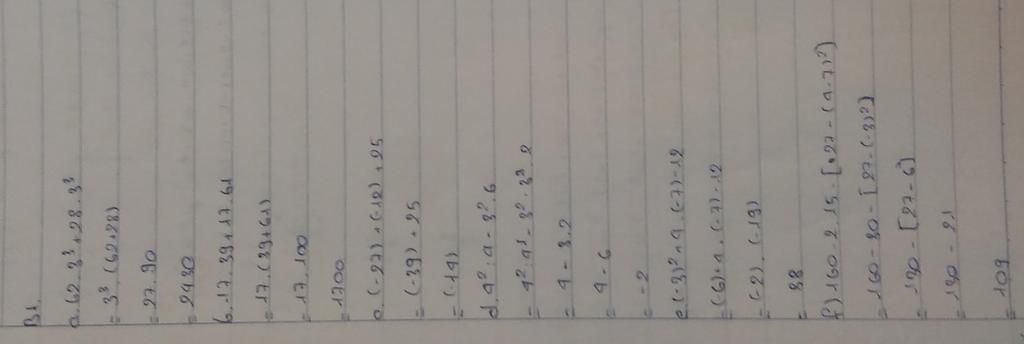 B1
a. 62.3³+28.3³
= 3³.(62+28)
= 27.90
= 2430
b. 17.39+17.61
= 17.(39+61)
= 17.100
= 1700
c. (-27)+(-12)+25
= (-39)+25
= (-14)
d. 4²:4-3².6
= 4²:4¹-3²:3².2
= 4-3.2
= 4-6
= -2
e. (-3)²+4+(-7)-12
= (6)+4+(-7)-12
= (-2).(-19)
= 88
f) 160-2.15-[27-(4-7)²]
= 160-30-[27-(-3)²]
= 130-[27-6]
= 130-21
= 109